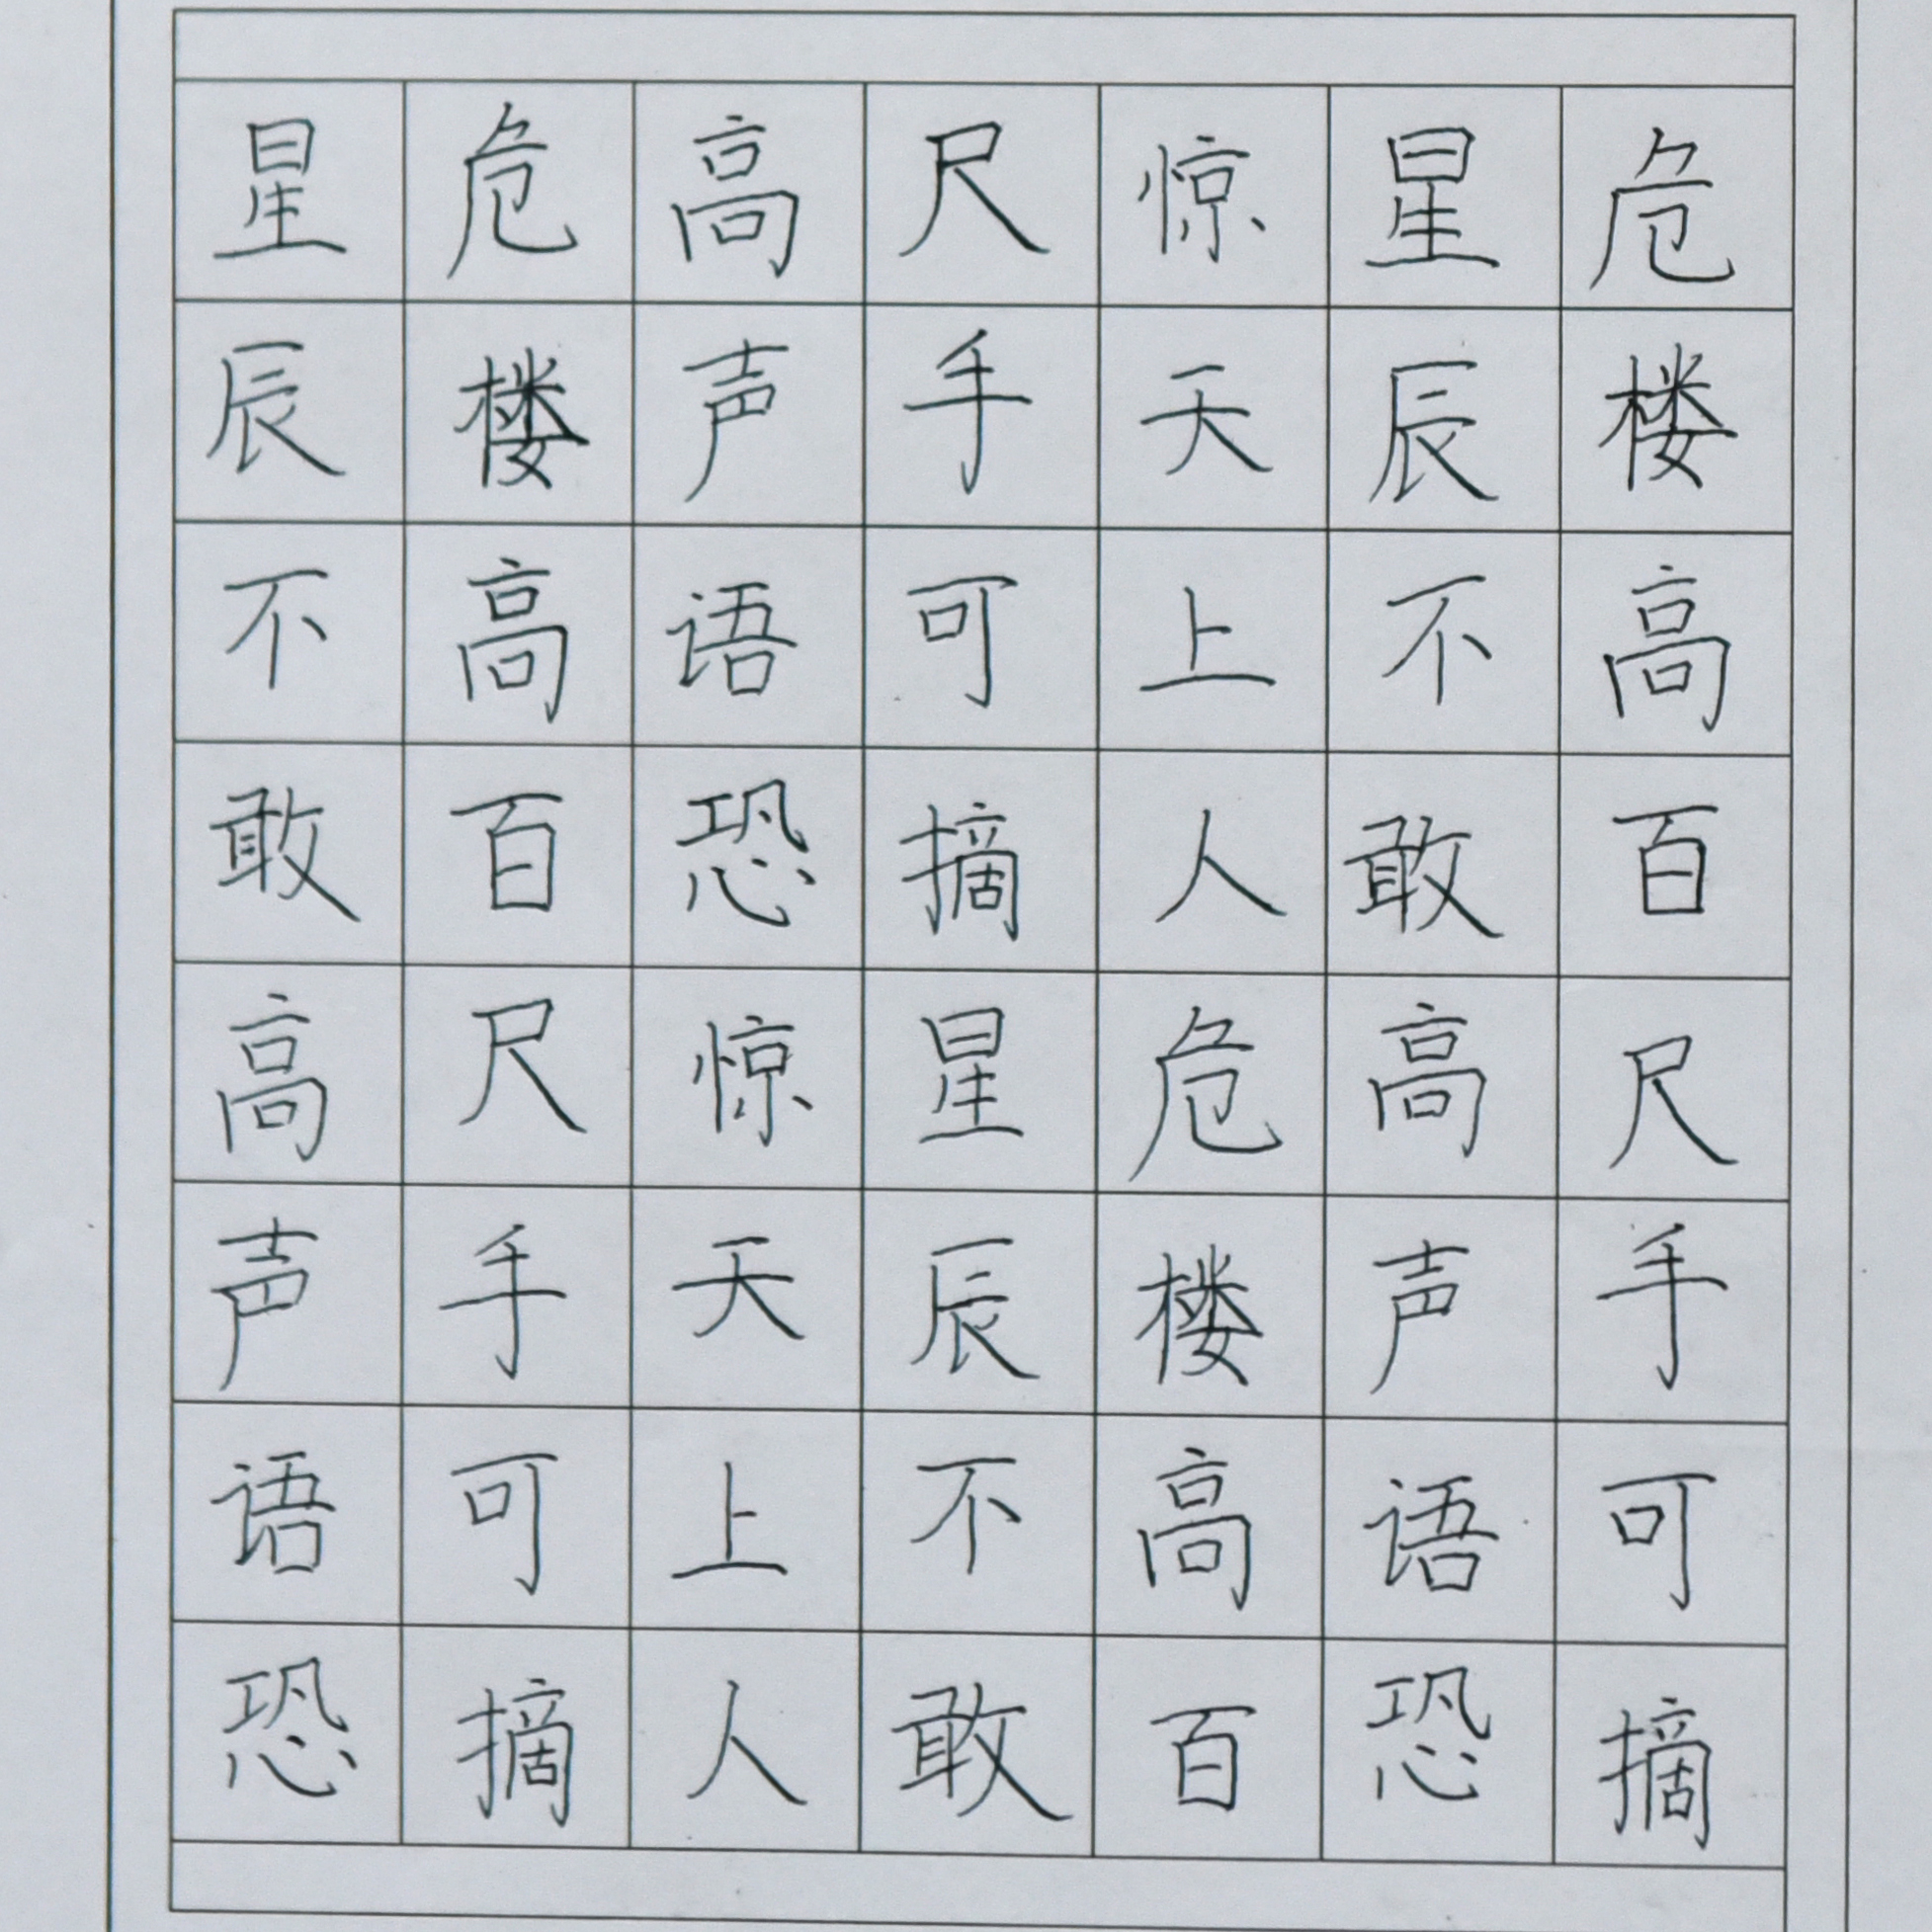 危楼高百尺手可摘
星辰不敢高声语恐
惊天上人危楼高百
尺手可摘星辰不敢
高声语恐惊天上人
危楼高百尺手可摘
星辰不敢高声语恐